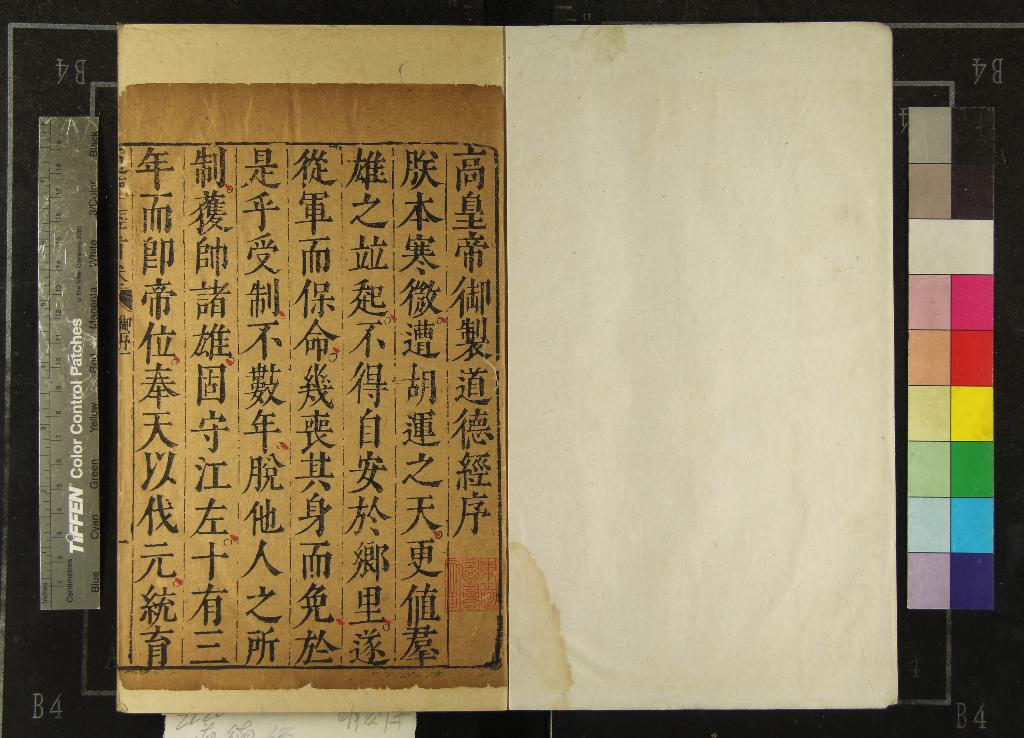 高皇帝御製道德經序
朕本寒微遭胡運之天更值羣
雄之竝起不得自安於鄉里遂
從軍而保命幾喪其身而免於
是乎受制不數年脫他人之所
制獲帥諸雄固守江左十有三
年而卽帝位奉天以伐元統育
御序
一
B4
B4
B4
B4
TIFFEN Color Control Patches
Inches
Centimetres
Blue
Cyan
Green
Yellow
Red
Magenta
White
3/Color
Black